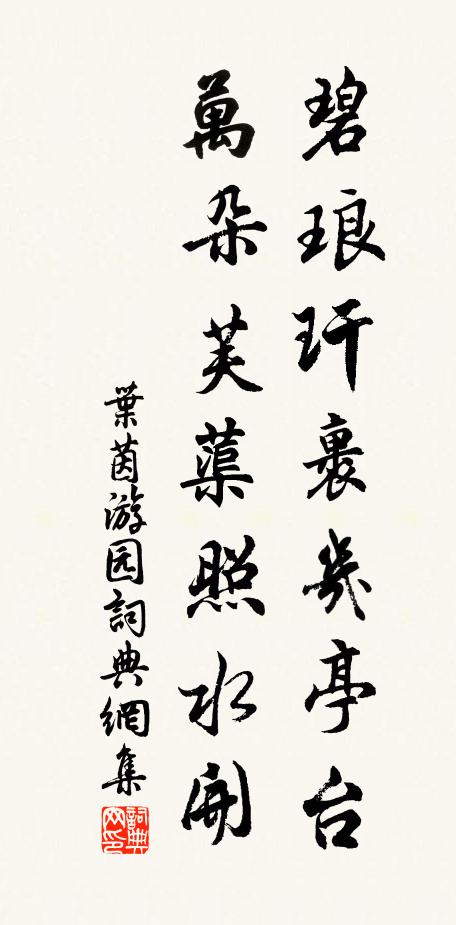 碧琅玕裹幾亭台
萬朵芙蕖照水開
葉茵游园詞典網集
詞典网印